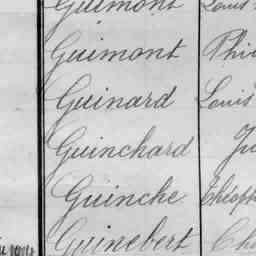 Guimont Louis
Guimont Phi
Guinard Louis
Guinchard Ju
Guinche Théoph
Guinebert Ch